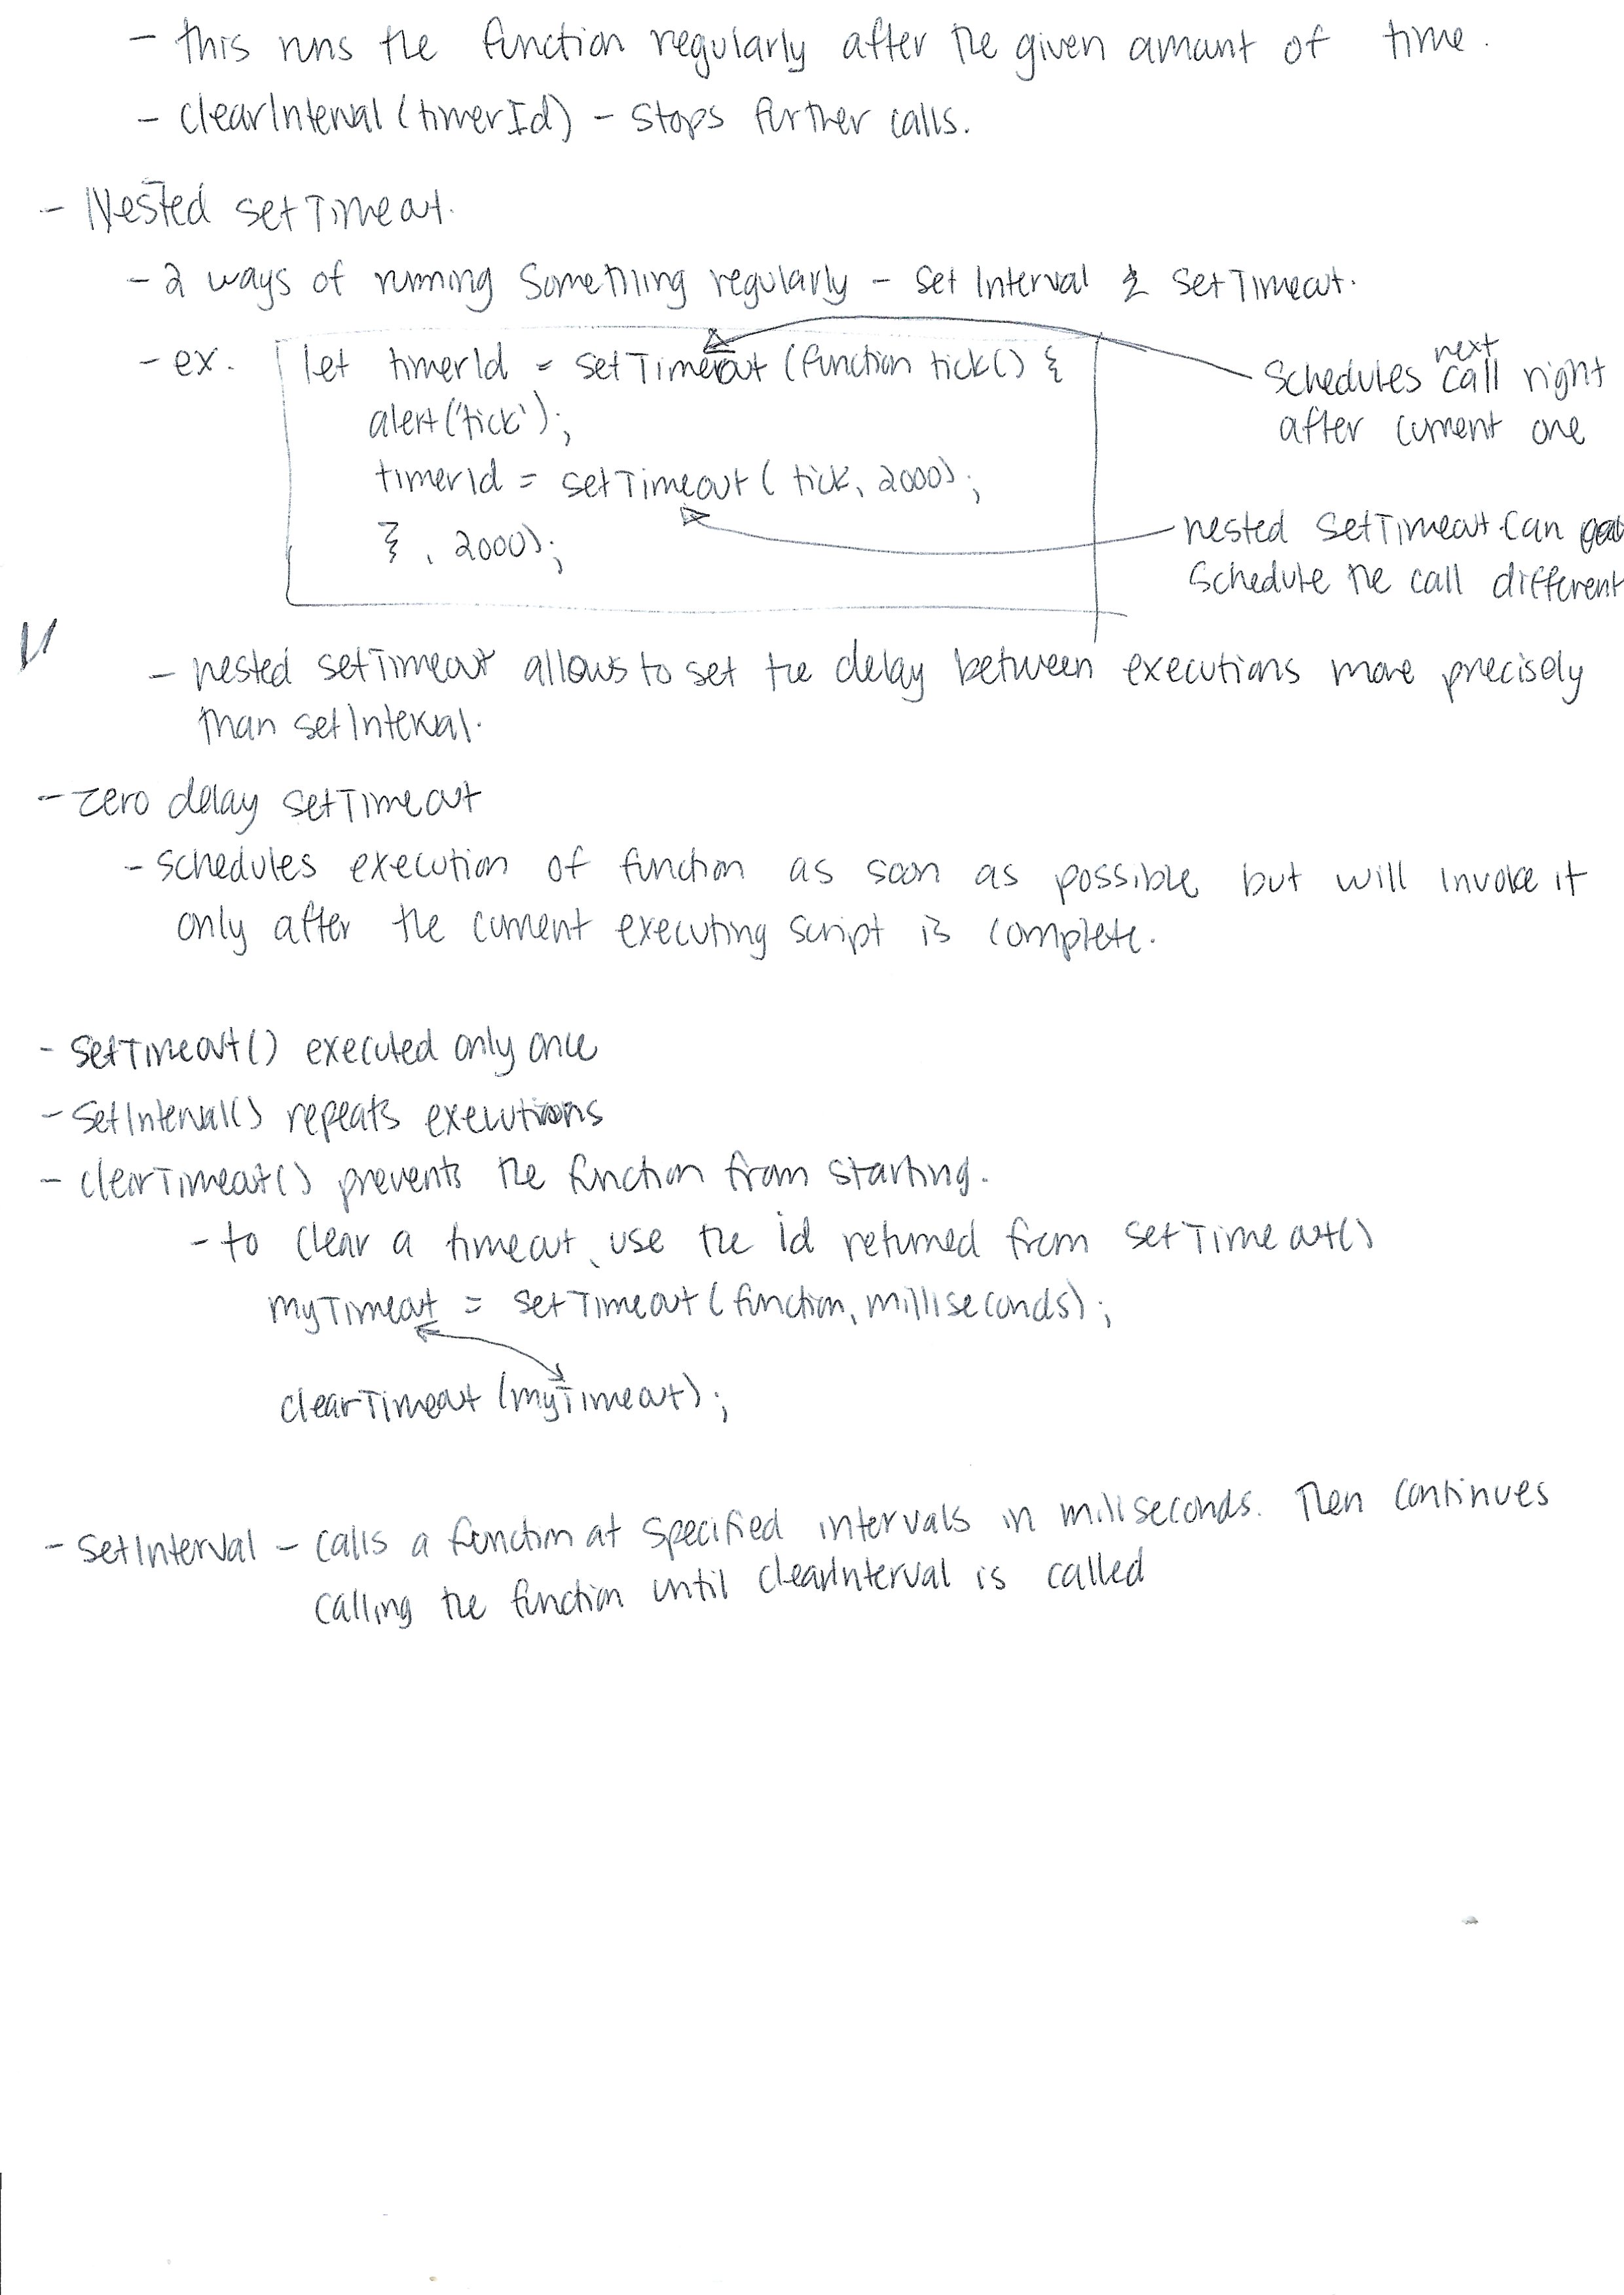 - this runs the function regularly after the given amount of time.
- clearInterval(timerId) - stops further calls.
- Nested setTimeout.
- 2 ways of running something regularly - set Interval & setTimeout.
- ex. let timerId = setTimeout (function tick() {
alert('tick');
timerId = setTimeout( tick, 2000);
} , 2000);
schedules next call right
after current one
nested setTimeout can
schedule the call different
- nested setTimeout allows to set the delay between executions more precisely
than setInterval.
- zero delay setTimeout
- schedules execution of function as soon as possible but will invoke it
only after the current executing script is complete.
- setTimeout() executed only once
- setInterval() repeats executions
- clearTimeout() prevents the function from starting.
- to clear a timeout, use the id returned from setTimeout()
myTimeout = setTimeout(function, milliseconds);
clearTimeout (myTimeout);
- setInterval - calls a function at specified intervals in miliseconds. Then continues
calling the function until clearInterval is called